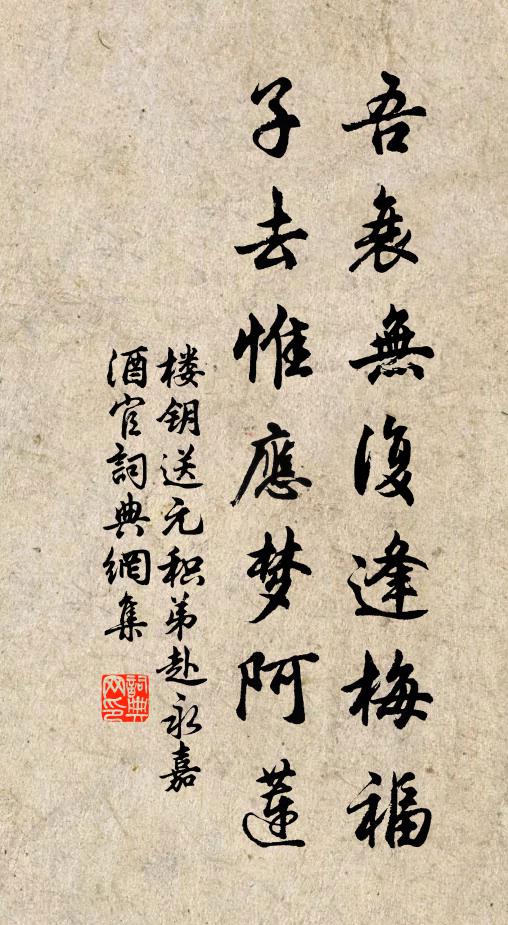 吾衰無復逢梅福
子去惟應梦阿蓮
楼钥送元积弟赴永嘉
酒官詞典網集
詞典网印